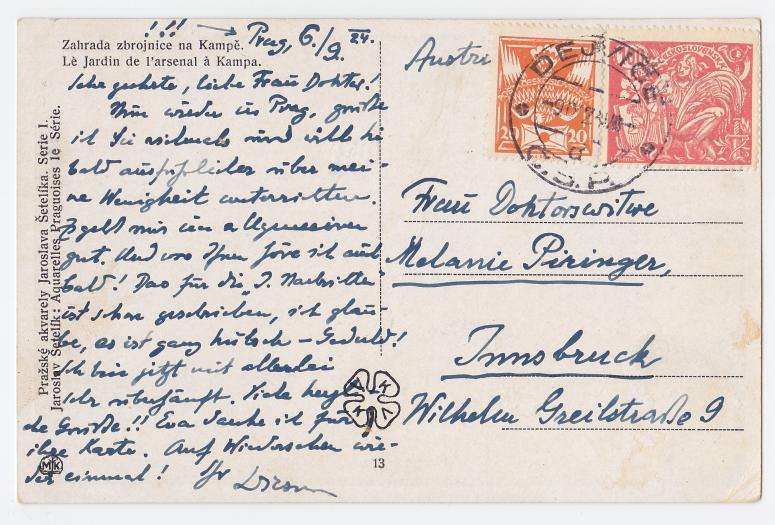 !!!
Zahrada zbrojnice na Kampě. → Prag, 6./9. 24.
Lè Jardin de l'arsenal à Kampa.
Sehr geehrte, liebe Frau Doktor!
Nun wieder in Prag, grüße
ich Sie vielmals und will Sie
bald ausführlicher über mei-
ne Wenigkeit unterrichten.
Es geht mir im Allgemeinen
gut. Und von Ihnen höre ich auch
bald! Das für die „I. Nachrichten"
ist schon geschrieben, ich glau-
be, es ist ganz hübsch – Geduld!
Ich bin jetzt mit allerlei
sehr überhäuft. Viele herzli-
che Grüße!! Eva danke ich für
ihre Karte. Auf Wiedersehen wie-
der einmal! Ihr
Pražské akvarely Jaroslava Šetelíka. Serie I.
Jaroslav Šetelík: Aquarelles Praguoises 1e Série.
MK
13
Austri
DEJVICE
Č.S.P.
20 20
ČESKOSLOVENSKÁ
Frau Doktorswitwe
Melannie Piringer,
Innsbruck
Wilhelm Greilstraße 9